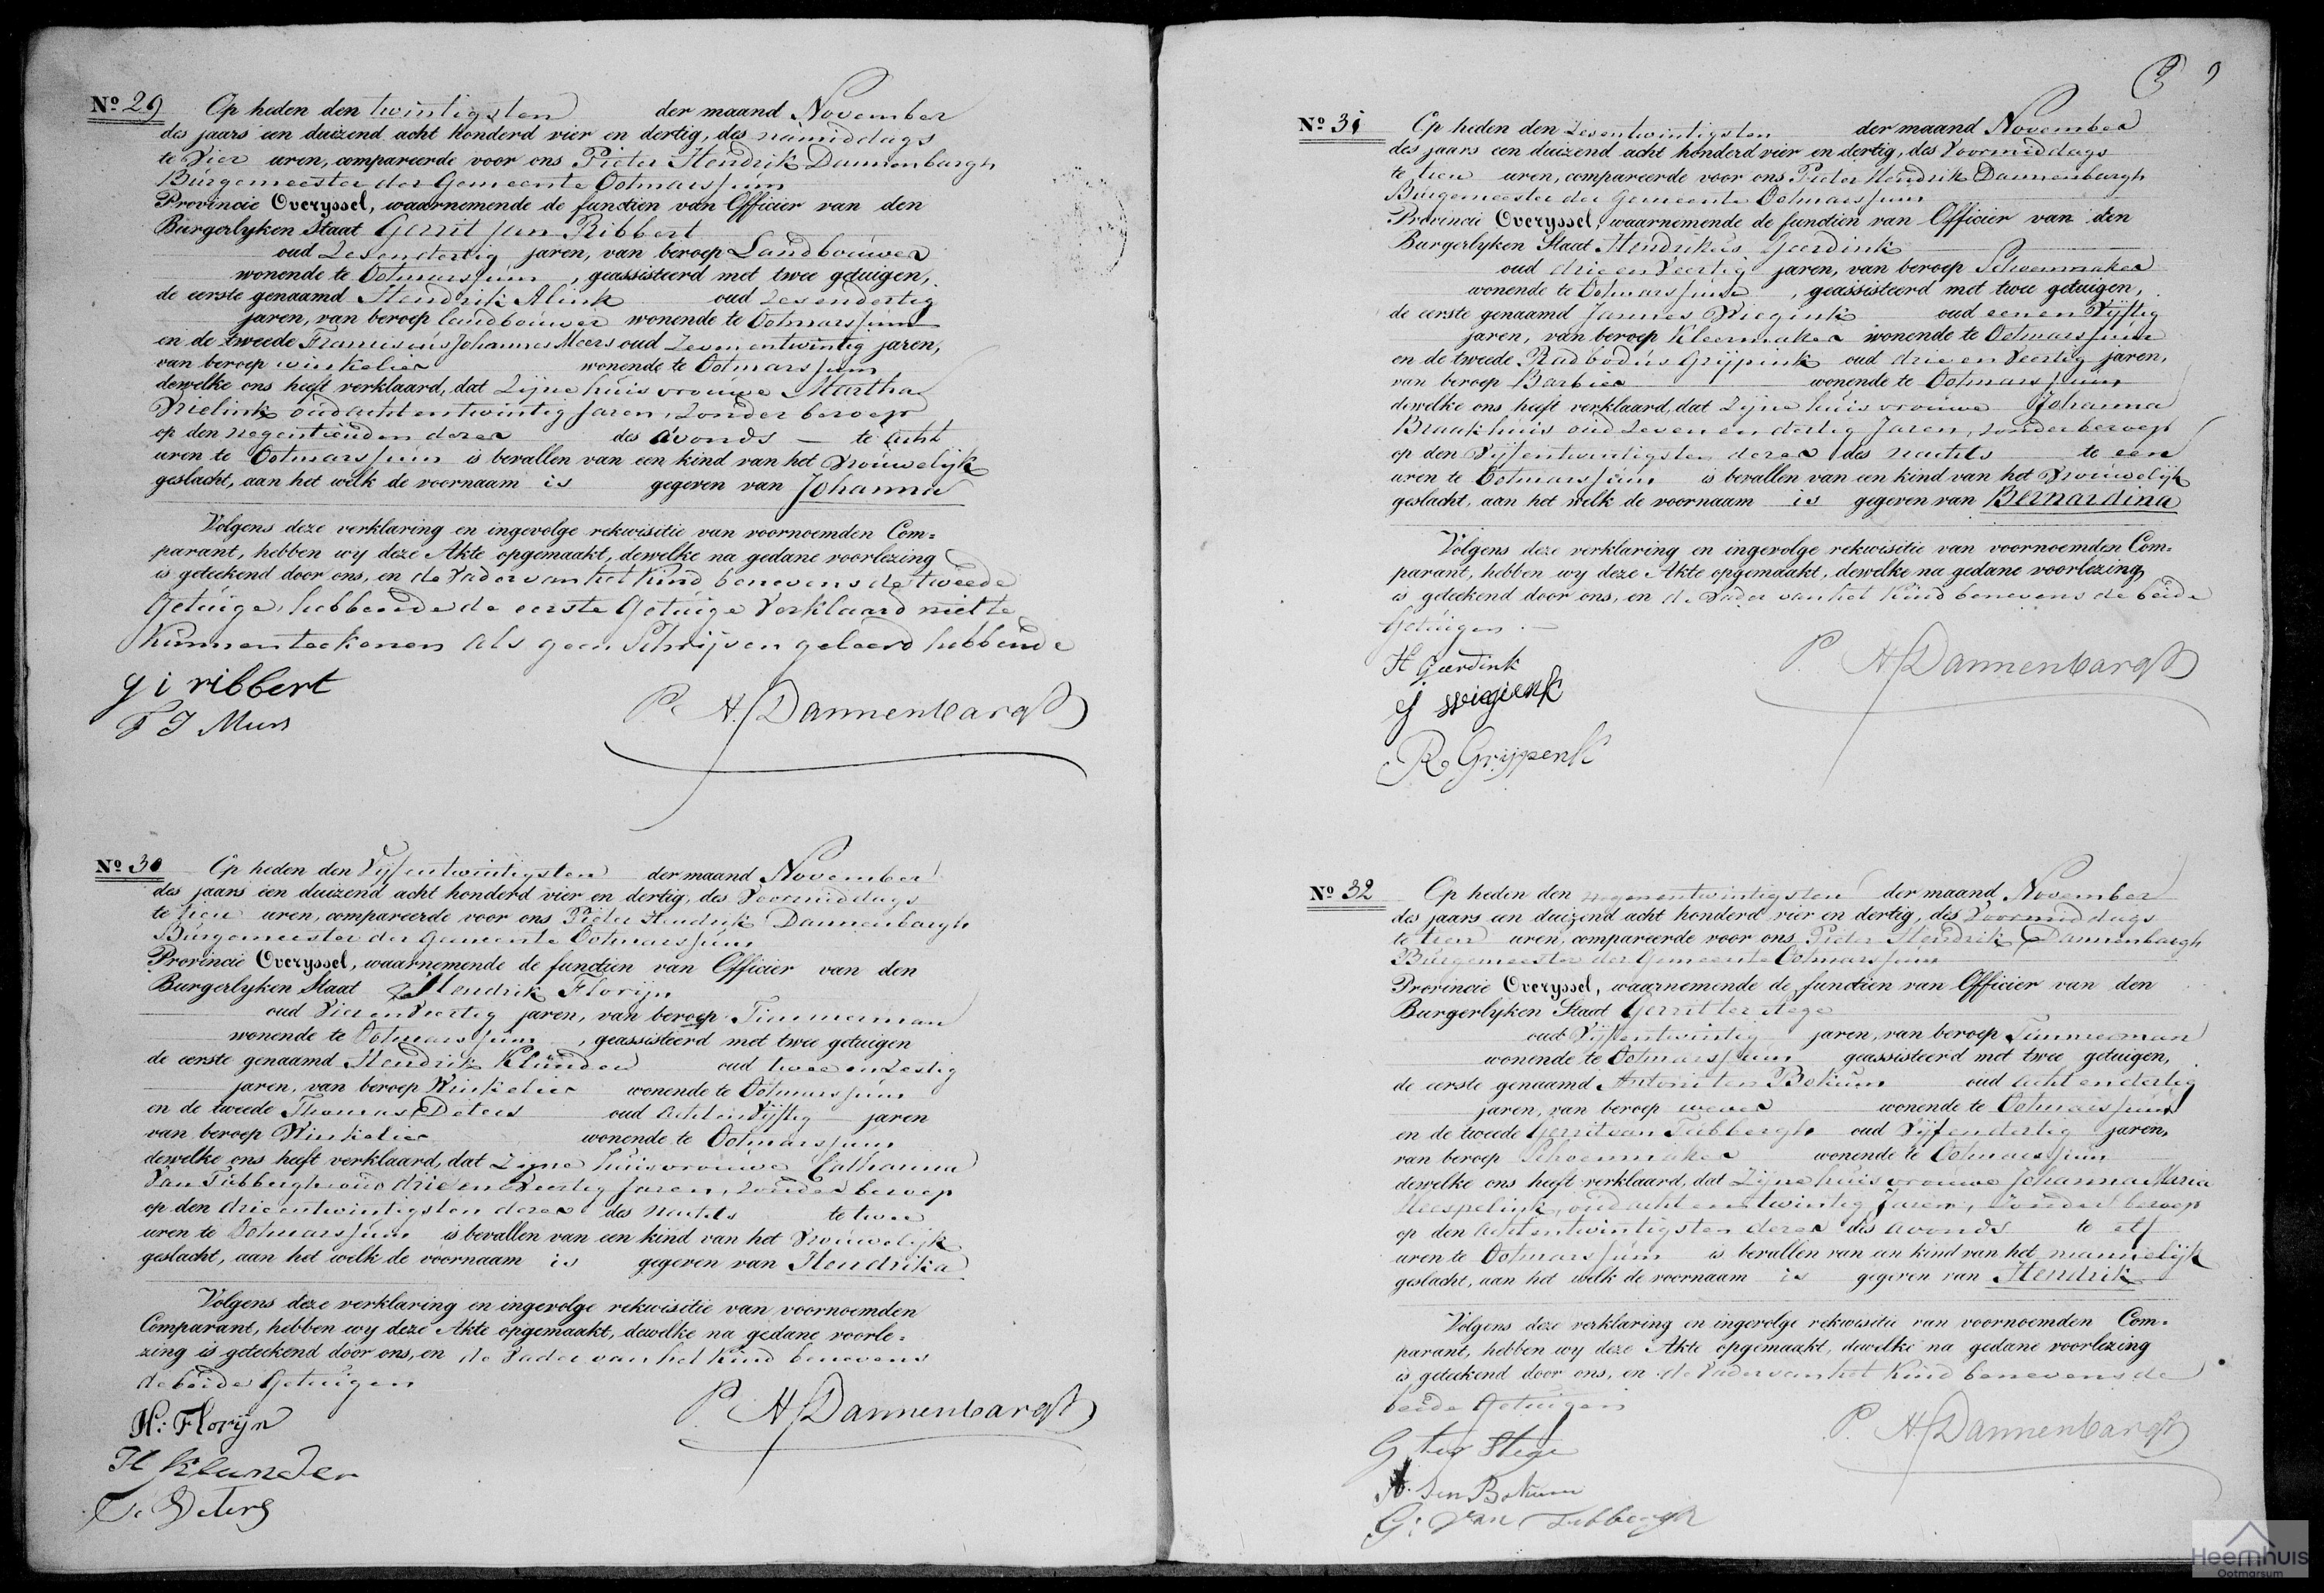 Nº 29 Op heden den twintigsten der maand November
des jaars een duizend acht honderd vier en dertig, des namiddags
te Vier uren, compareerde voor ons Pieter Hendrik Dannenbargh
Burgemeester der Gemeente Ootmarssum
Provincie Overyssel, waarnemende de functien van Officier van den
Burgerlyken Staat Gerrit Jan Ribbert
oud Zesendertig jaren, van beroep Landbouwer
wonende te Ootmarssum, geassisteerd met twee getuigen,
de eerste genaamd Hendrik Alink oud Zesendertig
jaren, van beroep landbouwer wonende te Ootmarssum
en de tweede Franciscus Johannes Meers oud Zevenentwintig jaren,
van beroep winkelier wonende te Ootmarssum
dewelke ons heeft verklaard, dat Zijne huisvrouwe Martha
Vrielink oud achtentwintig Jaren, Zonder beroep
op den negentienden dezer des avonds — te acht
uren te Ootmarssum is bevallen van een kind van het Vrouwelijk
geslacht, aan het welk de voornaam is gegeven van Johanna
Volgens deze verklaring en ingevolge rekwisitie van voornoemden Com=
parant, hebben wy deze Akte opgemaakt, dewelke na gedane voorlezing
is geteekend door ons, en de Vader van het Kind benevens de tweede
Getuige, hebbende de eerste Getuige Verklaard niet te
Kunnen teekenen als geen Schrijven geleerd hebbende
g i ribbert
P. H. Dannenbargh
F J Meers
Nº 30 Op heden den Vijfentwintigsten der maand November
des jaars een duizend acht honderd vier en dertig, des Voormiddags
te tien uren, compareerde voor ons Pieter Hendrik Dannenbargh
Burgemeester der Gemeente Ootmarssum
Provincie Overyssel, waarnemende de functien van Officier van den
Burgerlyken Staat Hendrik Florijn
oud Vierenveertig jaren, van beroep Timmerman
wonende te Ootmarssum, geassisteerd met twee getuigen
de eerste genaamd Hendrik Klunder oud twee en Zestig
jaren, van beroep Winkelier wonende te Ootmarssum
en de tweede Thomas Deters oud acht en Vijftig jaren
van beroep Winkelier wonende te Ootmarssum
dewelke ons heeft verklaard, dat Zijne huisvrouwe Catharina
Van Tubbergh oud drie en Veertig Jaren, zonder beroep
op den drieentwintigsten dezer des nachts te twee
uren te Ootmarssum is bevallen van een kind van het Vrouwelijk
geslacht, aan het welk de voornaam is gegeven van Hendrika
Volgens deze verklaring en ingevolge rekwisitie van voornoemden
Comparant, hebben wy deze Akte opgemaakt, dewelke na gedane voorle=
zing is geteekend door ons, en de Vader van het Kind benevens
de beide Getuigen
H: Florijn
P. H. Dannenbargh
H Klunder
T. Deters
Nº 31 Op heden den Zesentwintigsten der maand November
des jaars een duizend acht honderd vier en dertig, des Voormiddags
te tien uren, compareerde voor ons Pieter Hendrik Dannenbargh
Burgemeester der Gemeente Ootmarssum
Provincie Overyssel, waarnemende de functien van Officier van den
Burgerlyken Staat Hendrikus Geerdink
oud drie en Veertig jaren, van beroep Schoenmaker
wonende te Ootmarssum, geassisteerd met twee getuigen,
de eerste genaamd Jannes Wiegink oud eenen Vijftig
jaren, van beroep Kleermaker wonende te Ootmarssum
en de tweede Radbodus Grijpink oud drie en Veertig jaren,
van beroep Barbier wonende te Ootmarssum
dewelke ons heeft verklaard, dat Zijne huisvrouwe Johanna
Braakhuis oud Zeven en dertig Jaren, zonder beroep
op den Vijfentwintigsten dezer des nachts te een
uren te Ootmarssum is bevallen van een kind van het Vrouwelijk
geslacht, aan het welk de voornaam is gegeven van Bernardina
Volgens deze verklaring en ingevolge rekwisitie van voornoemden Com=
parant, hebben wy deze Akte opgemaakt, dewelke na gedane voorlezing
is geteekend door ons, en de Vader van het Kind benevens de beide
Getuigen.
H Geerdink
P. H. Dannenbargh
R Grijpenk
Nº 32 Op heden den negenentwintigsten der maand November
des jaars een duizend acht honderd vier en dertig, des Voormiddags
te tien uren, compareerde voor ons Pieter Hendrik Dannenbargh
Burgemeester der Gemeente Ootmarssum
Provincie Overyssel, waarnemende de functien van Officier van den
Burgerlyken Staat Gerrit ter Stege
oud Vijfentwintig jaren, van beroep Timmerman
wonende te Ootmarssum geassisteerd met twee getuigen,
de eerste genaamd Antoni ten Bokum oud acht en dertig
jaren, van beroep wever wonende te Ootmarssum
en de tweede Gerrit van Tubbergh oud Vijf en dertig jaren,
van beroep Schoenmaker wonende te Ootmarssum
dewelke ons heeft verklaard, dat Zijne huisvrouwe Johanna Maria
Heespelink, oud acht en twintig Jaren, Zonder beroep
op den achtentwintigsten dezer des avonds te elf
uren te Ootmarssum is bevallen van een kind van het mannelijk
geslacht, aan het welk de voornaam is gegeven van Hendrik
Volgens deze verklaring en ingevolge rekwisitie van voornoemden Com=
parant, hebben wy deze Akte opgemaakt, dewelke na gedane voorlezing
is geteekend door ons, en de Vader van het Kind benevens de
beide Getuigen
G ter Stege
P. H. Dannenbargh
A. ten Bokum
G: van Tubbergh
Heemhuis
Ootmarsum